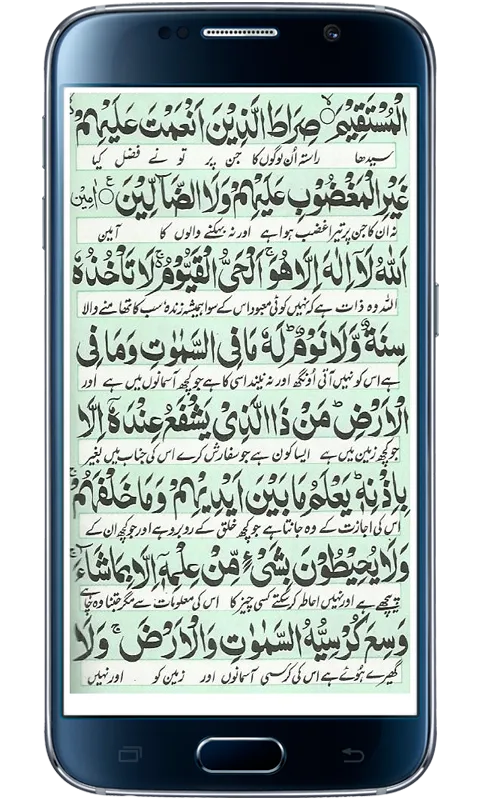 الْمُسْتَقِيْمَ ۙ صِرَاطَ الَّذِيْنَ اَنْعَمْتَ عَلَيْهِمْ
سیدھا راستہ اُن لوگوں کا جن پر تو نے فضل کیا
غَيْرِ الْمَغْضُوْبِ عَلَيْهِمْ وَلَا الضَّآلِّيْنَ ۠ اٰمِيْن
نہ ان کا جن پر تیرا غضب ہوا ہے اور نہ بہکنے والوں کا آمین
اَللّٰهُ لَآ اِلٰهَ اِلَّا هُوَ ۚ اَلْحَيُّ الْقَيُّوْمُ ۚ لَا تَأْخُذُهٗ
اللہ وہ ذات ہے کہ نہیں کوئی معبود اس کے سوا ہمیشہ زندہ سب کا تھامنے والا
سِنَةٌ وَّلَا نَوْمٌ ۭ لَهٗ مَا فِی السَّمٰوٰتِ وَمَا فِی
ہے اس کو نہیں آتی اونگھ اور نہ نیند اسی کا ہے جو کچھ آسمانوں میں ہے اور
الْاَرْضِ ۭ مَنْ ذَا الَّذِیْ يَشْفَعُ عِنْدَهٗٓ اِلَّا
جو کچھ زمین میں ہے ایسا کون ہے جو سفارش کرے اس کی جناب میں بغیر
بِاِذْنِهٖ ۭ يَعْلَمُ مَا بَيْنَ اَيْدِيْهِمْ وَمَا خَلْفَهُمْ ۚ
اس کی اجازت کے وہ جانتا ہے جو کچھ خلق کے روبرو ہے اور جو کچھ ان کے
وَلَا يُحِيْطُوْنَ بِشَیْءٍ مِّنْ عِلْمِهٖٓ اِلَّا بِمَا شَآءَ ۚ
پیچھے ہے اور نہیں احاطہ کر سکتے کسی چیز کا اس کی معلومات سے مگر جتنا وہ چاہے
وَسِعَ كُرْسِيُّهُ السَّمٰوٰتِ وَالْاَرْضَ ۚ وَلَا
گھیرے ہوئے ہے اس کی کرسی آسمانوں اور زمین کو اور نہیں